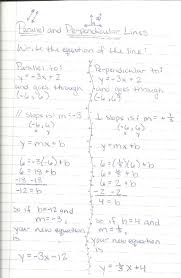 Parallel and Perpendicular Lines
Write the equation of the line:
Parallel to:
y = -3x + 2
and goes through
(-6, 6)
// slope is: m = -3
(-6, 6)
x y
y = mx + b
6 = -3(-6) + b
6 = 18 + b
-18 -18
-12 = b
so if b = -12 and
m = -3,
your new equation
is
y = -3x - 12
Perpendicular to:
y = -3x + 2
and goes through
(-6, 6)
⊥ slope is: m = + 1/3
(-6, 6)
x y
y = mx + b
6 = (1/3)(-6) + b
6 = -2 + b
+2 +2
so if b = 4 and
m = 1/3,
your new equation
is
y = 1/3 x + 4